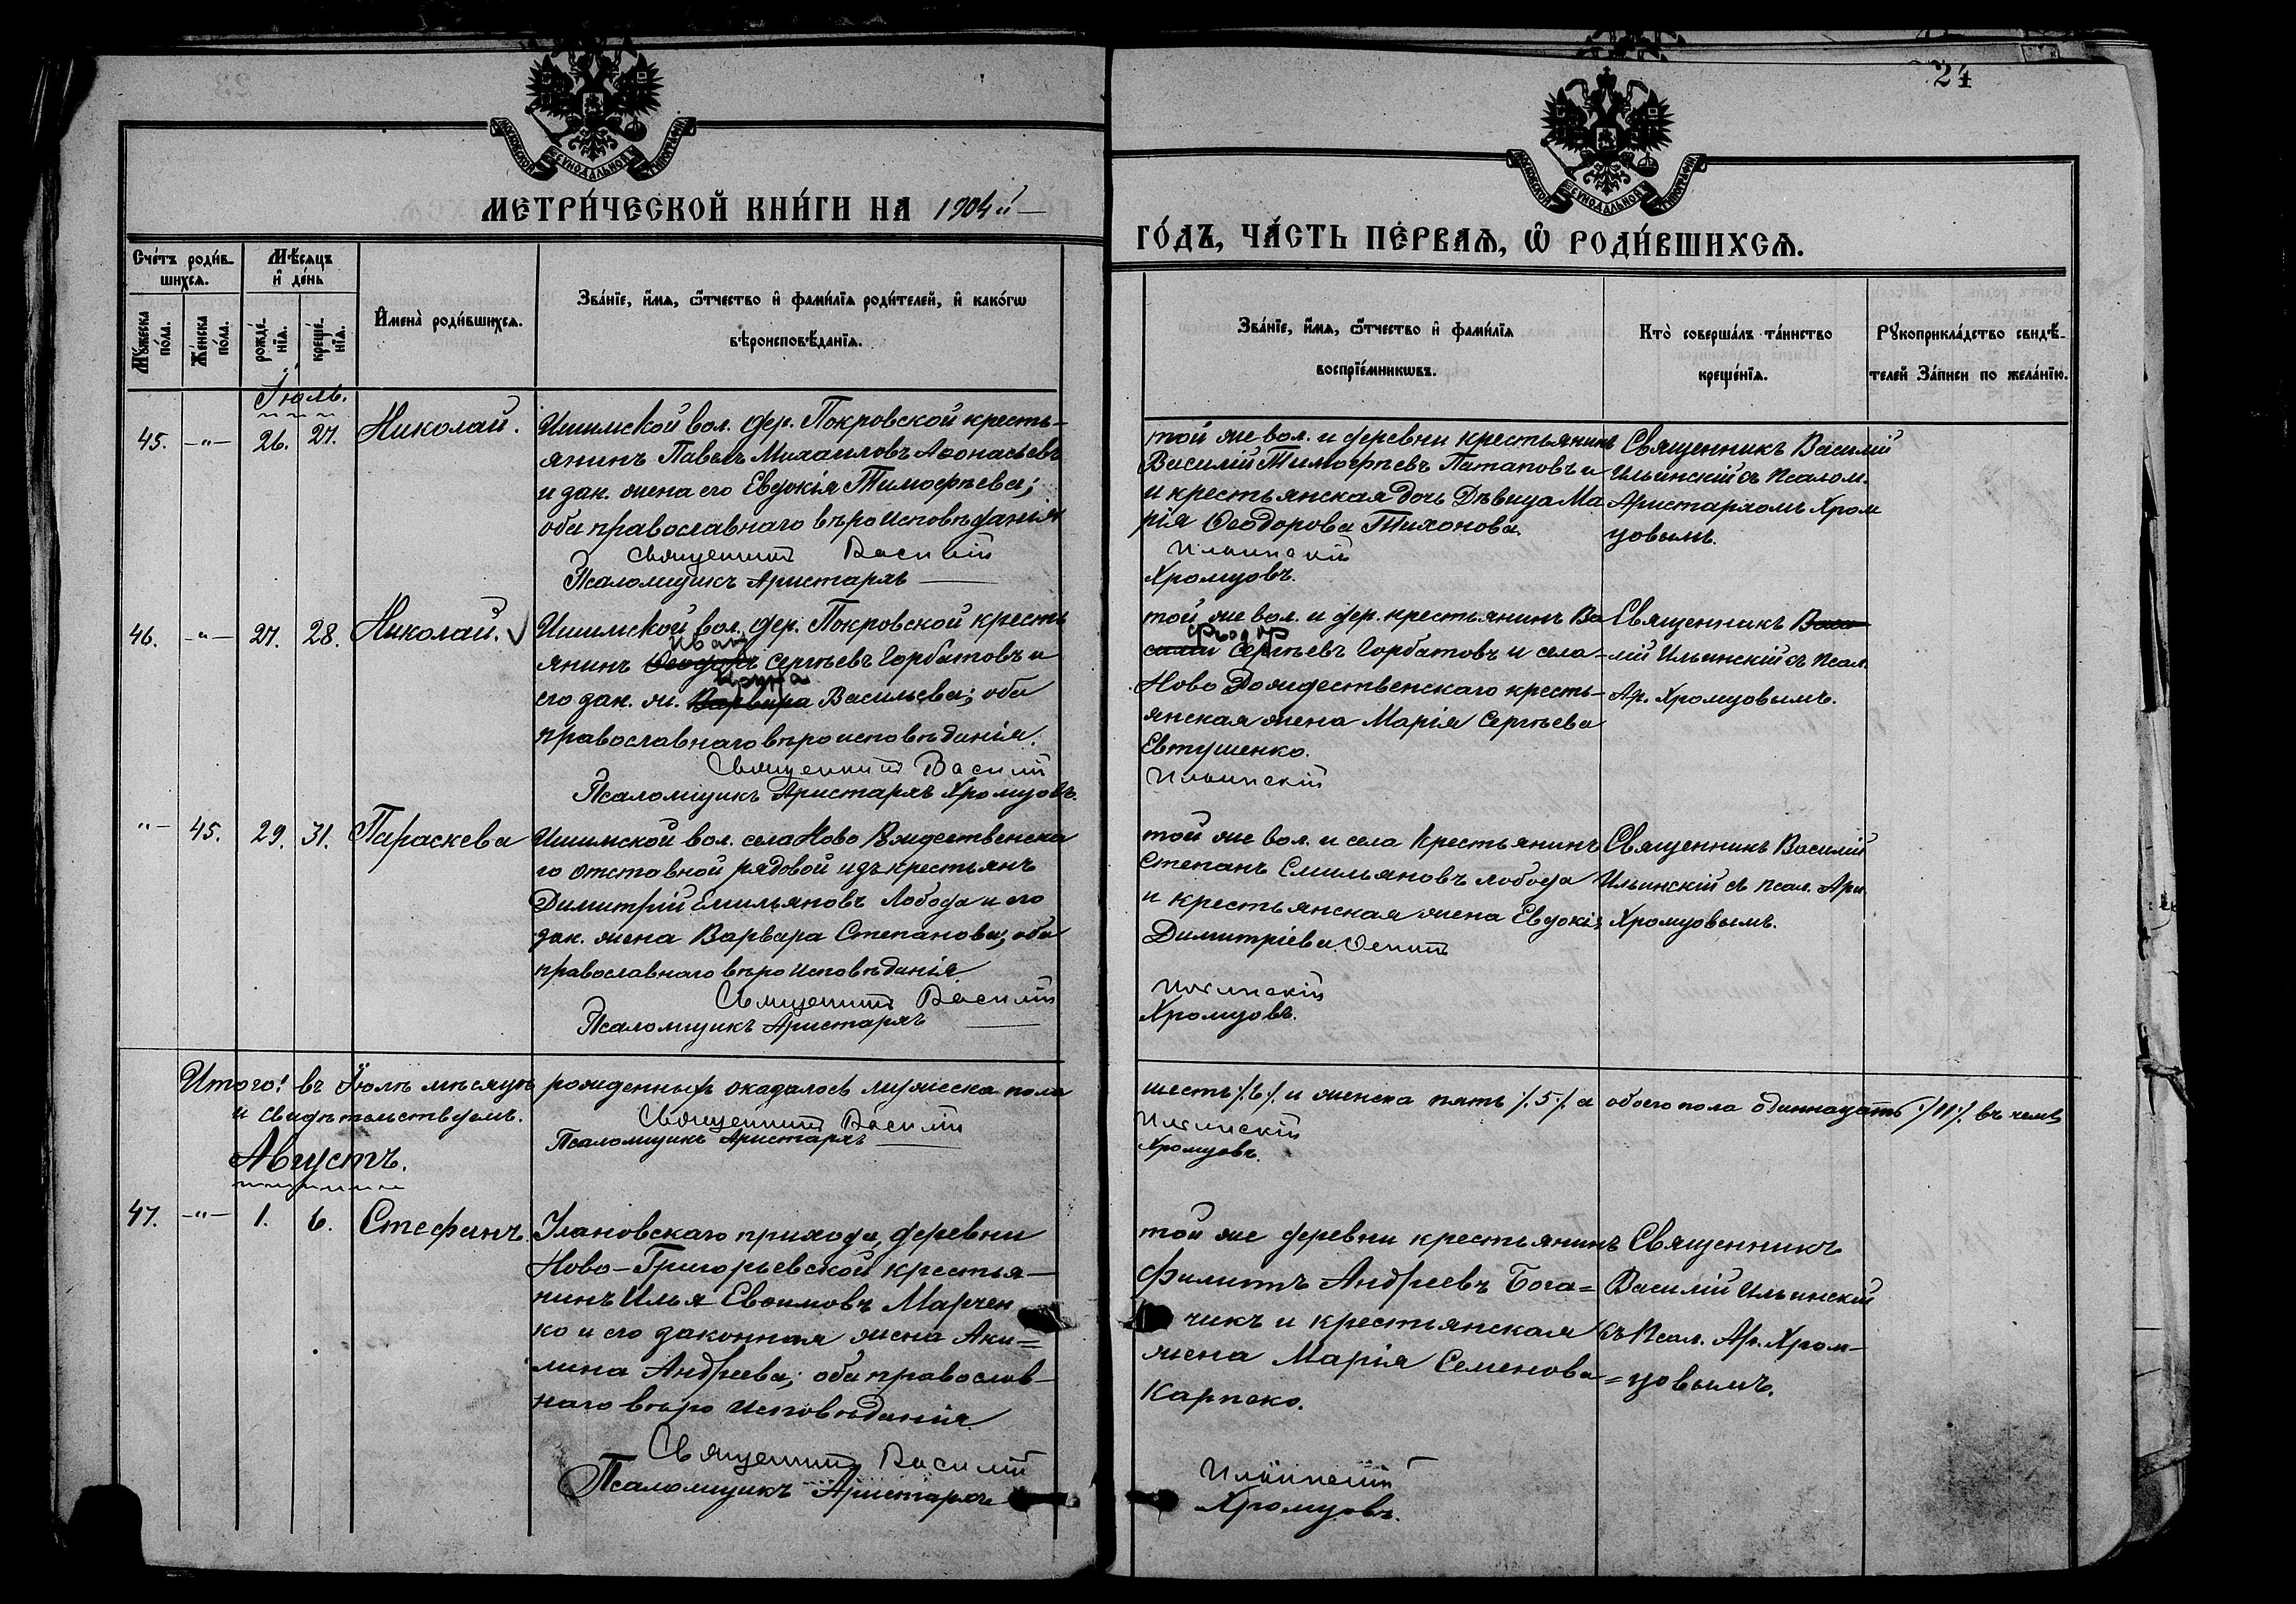 24
МОСКОВСКОЙ СѴНОДАЛЬНОЙ ТИПОГРАФІИ
МОСКОВСКОЙ СѴНОДАЛЬНОЙ ТИПОГРАФІИ
МЕТРИ́ЧЕСКОЙ КНИ́ГИ НА 1904й
ГО́ДЪ, ЧА́СТЬ ПЕ́РВАѦ, Ѽ РОДИ́ВШИХСѦ.
Сче́тъ роди́в-
шихсѧ.
Мѣ́сѧцъ
и де́нь
Мꙋ́жеска
по́ла.
Же́нска
по́ла.
рожде́-
нїѧ.
креще́-
нїѧ.
И҆мена̀ роди́вшихсѧ.
Зва́нїе, и҆́мѧ, ѻ҆́тчество и҆ фами́лїѧ роди́телей, и҆ како́гѡ
вѣроисповѣ́данїѧ.
Зва́нїе, и҆́мѧ, ѻ҆́тчество и҆ фами́лїѧ
воспрїе́мникѡвъ.
Кто̀ соверша́лъ та́инство
креще́нїѧ.
Рꙋкоприкла́дство свидѣ́-
телей За́писи по жела́нїю.
Іюль.
45. -"- 26. 27. Николай.
Ишимской вол. дер. Покровской кресть-
янинъ Павелъ Михаиловъ Аѳонасьевъ
и зак. жена его Евдокія Тимоѳѣева;
оба православнаго вѣроисповѣданія
Священникъ Василій
Псаломщикъ Аристархъ
той же вол. и деревни крестьянинъ
Василій Тимофѣевъ Патаповъ и
и крестьянская дочь Дѣвица Ма
рія Ѳеодорова Тихонова.
Ильинскій
Хромцовъ.
Священникъ Василій
Ильинскій съ Псалом.
Аристархомъ Хром
цовымъ.
46. -"- 27. 28. Николай.
Ишимской вол. дер. Покровской кресть
Иванъ
янинъ Ѳеодоръ Сергѣевъ Горбатовъ и
его зак. ж. Варвара Васильева; оба
православнаго вѣроисповѣданія.
Священникъ Василій
Псаломщикъ Аристархъ Хромцовъ.
той же вол. и дер. крестьянинъ Ва
Ѳеодор
силій Сергѣевъ Горбатовъ и села
Ново Рождественскаго кресть-
янская жена Марія Сергѣева
Евтушенко.
Ильинскій
Священникъ Васи
лій Ильинскій съ Псал.
Ар. Хромцовымъ.
"- 45. 29. 31. Параскева
Ишимской вол. села Ново Рождественска
го отставной рядовой изъ крестьянъ
Димитрій Емильяновъ Лобода и его
зак. жена Варвара Степанова; оба
православнаго вѣроисповѣданія
Священникъ Василій
Псаломщикъ Аристархъ
той же вол. и села Крестьянинъ
Степанъ Емильяновъ Лобода
и крестьянская жена Евдокія
Димитріева
Ильинскій
Хромцовъ.
Священникъ Василій
Ильинскій съ Псал. Ари.
Хромцовымъ.
Итого: въ Іюлѣ мѣсяцѣ рожденныхъ оказалось мужеска пола шесть ./.6./. и женска пять ./.5./. а обоего пола одиннадцать ./.11./. въ чемъ
и свидѣтельствуемъ.
Священникъ Василій Ильинскій
Псаломщикъ Аристархъ Хромцовъ.
Августъ.
47. -"- 1. 6. Стефанъ.
Улановскаго прихода, деревни
Ново-Григорьевской крестья-
нинъ Илья Евѳимовъ Марчен
ко и его законная жена Аки=
лина Андреева; оба православ-
наго вѣро исповѣданія
Священникъ Василій
Псаломщикъ Аристархъ
той же деревни крестьянинъ
Филиппъ Андреевъ Бога=
чикъ и крестьянская
жена Марія Семенова
Карпеко.
Ильинскій
Хромцовъ.
Священникъ
Василій Ильинскій
съ Псал. Ар. Хром-
=цовымъ.